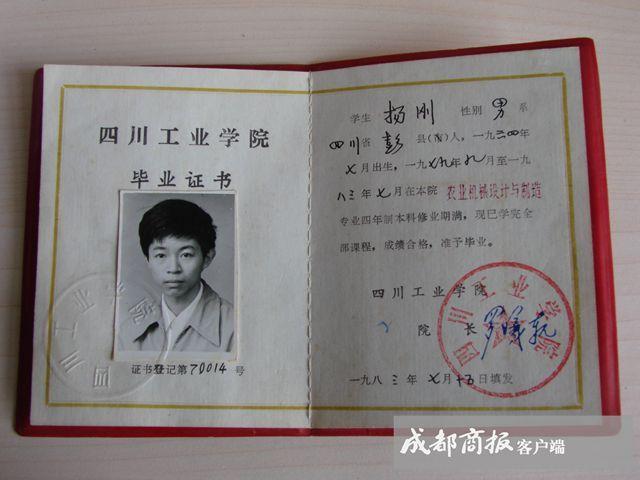 四川工业学院
毕业证书
证书登记第70014号
学生 杨刚 性别 男 系
四川省 彭 县(市)人,一九 四年
七月出生,一九七九年九月至一九
八三年七月在本院 农业机械设计与制造
专业四年制本科修业期满,现已学完全
部课程,成绩合格,准予毕业。
四川工业学院
院 长
四川工业学院
一九八三年七月十五日填发
成都商报客户端